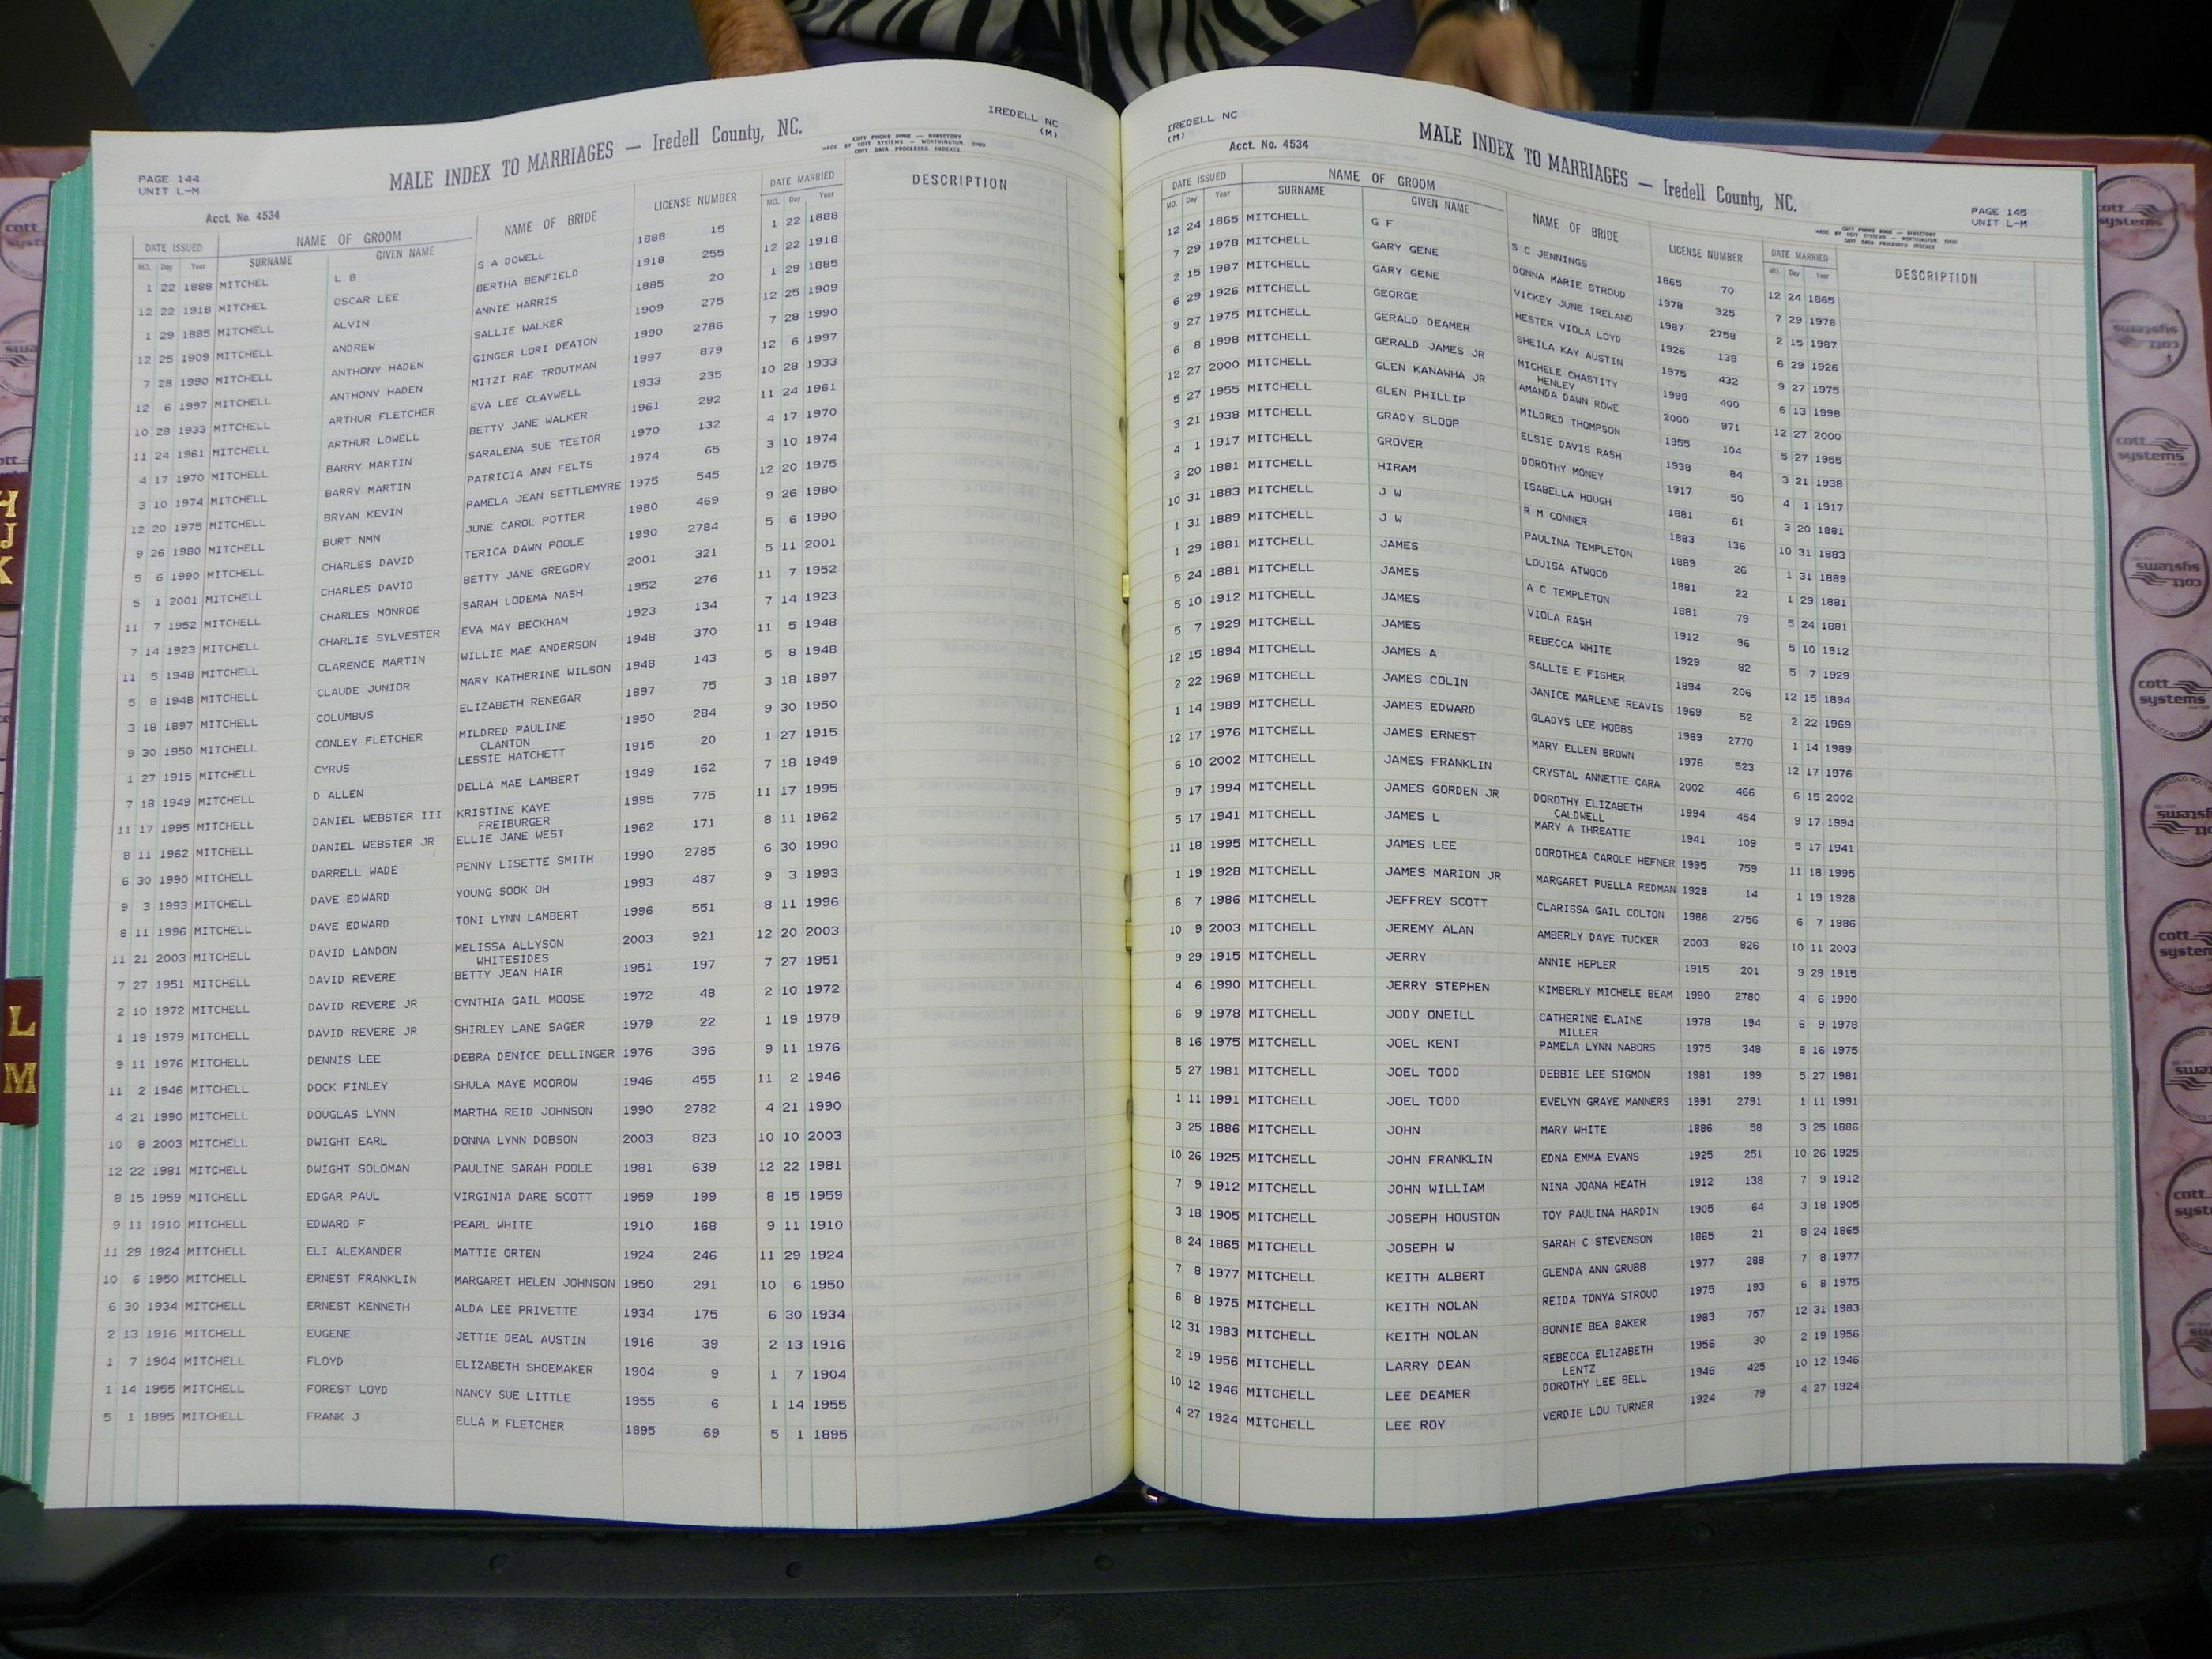 IREDELL NC
(M)
MALE INDEX TO MARRIAGES — Iredell County, NC.
COTT PHONE BOOK — DIRECTORY
MADE BY COTT SYSTEMS — WORTHINGTON, OHIO
COTT DATA PROCESSED INDEXES
PAGE 144
UNIT L-M
Acct. No. 4534
DATE ISSUED NAME OF GROOM NAME OF BRIDE LICENSE NUMBER DATE MARRIED DESCRIPTION
MO. Day Year SURNAME GIVEN NAME MO. Day Year
1 22 1888 MITCHEL L B S A DOWELL 1888 15 1 22 1888
12 22 1918 MITCHEL OSCAR LEE BERTHA BENFIELD 1918 255 12 22 1918
1 29 1885 MITCHELL ALVIN ANNIE HARRIS 1885 20 1 29 1885
12 25 1909 MITCHELL ANDREW SALLIE WALKER 1909 275 12 25 1909
7 28 1990 MITCHELL ANTHONY HADEN GINGER LORI DEATON 1990 2786 7 28 1990
12 6 1997 MITCHELL ANTHONY HADEN MITZI RAE TROUTMAN 1997 879 12 6 1997
10 28 1933 MITCHELL ARTHUR FLETCHER EVA LEE CLAYWELL 1933 235 10 28 1933
11 24 1961 MITCHELL ARTHUR LOWELL BETTY JANE WALKER 1961 292 11 24 1961
4 17 1970 MITCHELL BARRY MARTIN SARALENA SUE TEETOR 1970 132 4 17 1970
3 10 1974 MITCHELL BARRY MARTIN PATRICIA ANN FELTS 1974 65 3 10 1974
12 20 1975 MITCHELL BRYAN KEVIN PAMELA JEAN SETTLEMYRE 1975 545 12 20 1975
9 26 1980 MITCHELL BURT NMN JUNE CAROL POTTER 1980 469 9 26 1980
5 6 1990 MITCHELL CHARLES DAVID TERICA DAWN POOLE 1990 2784 5 6 1990
5 1 2001 MITCHELL CHARLES DAVID BETTY JANE GREGORY 2001 321 5 11 2001
11 7 1952 MITCHELL CHARLES MONROE SARAH LODEMA NASH 1952 276 11 7 1952
7 14 1923 MITCHELL CHARLIE SYLVESTER EVA MAY BECKHAM 1923 134 7 14 1923
11 5 1948 MITCHELL CLARENCE MARTIN WILLIE MAE ANDERSON 1948 370 11 5 1948
5 8 1948 MITCHELL CLAUDE JUNIOR MARY KATHERINE WILSON 1948 143 5 8 1948
3 18 1897 MITCHELL COLUMBUS ELIZABETH RENEGAR 1897 75 3 18 1897
9 30 1950 MITCHELL CONLEY FLETCHER MILDRED PAULINE 1950 284 9 30 1950
CLANTON
1 27 1915 MITCHELL CYRUS LESSIE HATCHETT 1915 20 1 27 1915
7 18 1949 MITCHELL D ALLEN DELLA MAE LAMBERT 1949 162 7 18 1949
11 17 1995 MITCHELL DANIEL WEBSTER III KRISTINE KAYE 1995 775 11 17 1995
FREIBURGER
8 11 1962 MITCHELL DANIEL WEBSTER JR ELLIE JANE WEST 1962 171 8 11 1962
6 30 1990 MITCHELL DARRELL WADE PENNY LISETTE SMITH 1990 2785 6 30 1990
9 3 1993 MITCHELL DAVE EDWARD YOUNG SOOK OH 1993 487 9 3 1993
8 11 1996 MITCHELL DAVE EDWARD TONI LYNN LAMBERT 1996 551 8 11 1996
11 21 2003 MITCHELL DAVID LANDON MELISSA ALLYSON 2003 921 12 20 2003
WHITESIDES
7 27 1951 MITCHELL DAVID REVERE BETTY JEAN HAIR 1951 197 7 27 1951
2 10 1972 MITCHELL DAVID REVERE JR CYNTHIA GAIL MOOSE 1972 48 2 10 1972
1 19 1979 MITCHELL DAVID REVERE JR SHIRLEY LANE SAGER 1979 22 1 19 1979
9 11 1976 MITCHELL DENNIS LEE DEBRA DENICE DELLINGER 1976 396 9 11 1976
11 2 1946 MITCHELL DOCK FINLEY SHULA MAYE MOOROW 1946 455 11 2 1946
4 21 1990 MITCHELL DOUGLAS LYNN MARTHA REID JOHNSON 1990 2782 4 21 1990
10 8 2003 MITCHELL DWIGHT EARL DONNA LYNN DOBSON 2003 823 10 10 2003
12 22 1981 MITCHELL DWIGHT SOLOMAN PAULINE SARAH POOLE 1981 639 12 22 1981
8 15 1959 MITCHELL EDGAR PAUL VIRGINIA DARE SCOTT 1959 199 8 15 1959
9 11 1910 MITCHELL EDWARD F PEARL WHITE 1910 168 9 11 1910
11 29 1924 MITCHELL ELI ALEXANDER MATTIE ORTEN 1924 246 11 29 1924
10 6 1950 MITCHELL ERNEST FRANKLIN MARGARET HELEN JOHNSON 1950 291 10 6 1950
6 30 1934 MITCHELL ERNEST KENNETH ALDA LEE PRIVETTE 1934 175 6 30 1934
2 13 1916 MITCHELL EUGENE JETTIE DEAL AUSTIN 1916 39 2 13 1916
1 7 1904 MITCHELL FLOYD ELIZABETH SHOEMAKER 1904 9 1 7 1904
1 14 1955 MITCHELL FOREST LOYD NANCY SUE LITTLE 1955 6 1 14 1955
5 1 1895 MITCHELL FRANK J ELLA M FLETCHER 1895 69 5 1 1895
IREDELL NC
(M)
Acct. No. 4534
MALE INDEX TO MARRIAGES — Iredell County, NC.
PAGE 145
UNIT L-M
COTT PHONE BOOK — DIRECTORY
MADE BY COTT SYSTEMS — WORTHINGTON, OHIO
COTT DATA PROCESSED INDEXES
DATE ISSUED NAME OF GROOM NAME OF BRIDE LICENSE NUMBER DATE MARRIED DESCRIPTION
MO. Day Year SURNAME GIVEN NAME MO. Day Year
12 24 1865 MITCHELL G F S C JENNINGS 1865 70 12 24 1865
7 29 1978 MITCHELL GARY GENE DONNA MARIE STROUD 1978 325 7 29 1978
2 15 1987 MITCHELL GARY GENE VICKEY JUNE IRELAND 1987 2758 2 15 1987
6 29 1926 MITCHELL GEORGE HESTER VIOLA LOYD 1926 138 6 29 1926
9 27 1975 MITCHELL GERALD DEAMER SHEILA KAY AUSTIN 1975 432 9 27 1975
6 8 1998 MITCHELL GERALD JAMES JR MICHELE CHASTITY 1998 400 6 13 1998
HENLEY
12 27 2000 MITCHELL GLEN KANAWHA JR AMANDA DAWN ROWE 2000 971 12 27 2000
5 27 1955 MITCHELL GLEN PHILLIP MILDRED THOMPSON 1955 104 5 27 1955
3 21 1938 MITCHELL GRADY SLOOP ELSIE DAVIS RASH 1938 84 3 21 1938
4 1 1917 MITCHELL GROVER DOROTHY MONEY 1917 50 4 1 1917
3 20 1881 MITCHELL HIRAM ISABELLA HOUGH 1881 61 3 20 1881
10 31 1883 MITCHELL J W R M CONNER 1883 136 10 31 1883
1 31 1889 MITCHELL J W PAULINA TEMPLETON 1889 26 1 31 1889
1 29 1881 MITCHELL JAMES LOUISA ATWOOD 1881 22 1 29 1881
5 24 1881 MITCHELL JAMES A C TEMPLETON 1881 79 5 24 1881
5 10 1912 MITCHELL JAMES VIOLA RASH 1912 96 5 10 1912
5 7 1929 MITCHELL JAMES REBECCA WHITE 1929 82 5 7 1929
12 15 1894 MITCHELL JAMES A SALLIE E FISHER 1894 206 12 15 1894
2 22 1969 MITCHELL JAMES COLIN JANICE MARLENE REAVIS 1969 52 2 22 1969
1 14 1989 MITCHELL JAMES EDWARD GLADYS LEE HOBBS 1989 2770 1 14 1989
12 17 1976 MITCHELL JAMES ERNEST MARY ELLEN BROWN 1976 523 12 17 1976
6 10 2002 MITCHELL JAMES FRANKLIN CRYSTAL ANNETTE CARA 2002 466 6 15 2002
9 17 1994 MITCHELL JAMES GORDEN JR DOROTHY ELIZABETH 1994 454 9 17 1994
CALDWELL
5 17 1941 MITCHELL JAMES L MARY A THREATTE 1941 109 5 17 1941
11 18 1995 MITCHELL JAMES LEE DOROTHEA CAROLE HEFNER 1995 759 11 18 1995
1 19 1928 MITCHELL JAMES MARION JR MARGARET PUELLA REDMAN 1928 14 1 19 1928
6 7 1986 MITCHELL JEFFREY SCOTT CLARISSA GAIL COLTON 1986 2756 6 7 1986
10 9 2003 MITCHELL JEREMY ALAN AMBERLY DAYE TUCKER 2003 826 10 11 2003
9 29 1915 MITCHELL JERRY ANNIE HEPLER 1915 201 9 29 1915
4 6 1990 MITCHELL JERRY STEPHEN KIMBERLY MICHELE BEAM 1990 2780 4 6 1990
6 9 1978 MITCHELL JODY ONEILL CATHERINE ELAINE 1978 194 6 9 1978
MILLER
8 16 1975 MITCHELL JOEL KENT PAMELA LYNN NABORS 1975 348 8 16 1975
5 27 1981 MITCHELL JOEL TODD DEBBIE LEE SIGMON 1981 199 5 27 1981
1 11 1991 MITCHELL JOEL TODD EVELYN GRAYE MANNERS 1991 2791 1 11 1991
3 25 1886 MITCHELL JOHN MARY WHITE 1886 58 3 25 1886
10 26 1925 MITCHELL JOHN FRANKLIN EDNA EMMA EVANS 1925 251 10 26 1925
7 9 1912 MITCHELL JOHN WILLIAM NINA JOANA HEATH 1912 138 7 9 1912
3 18 1905 MITCHELL JOSEPH HOUSTON TOY PAULINA HARDIN 1905 64 3 18 1905
8 24 1865 MITCHELL JOSEPH W SARAH C STEVENSON 1865 21 8 24 1865
7 8 1977 MITCHELL KEITH ALBERT GLENDA ANN GRUBB 1977 288 7 8 1977
6 8 1975 MITCHELL KEITH NOLAN REIDA TONYA STROUD 1975 193 6 8 1975
12 31 1983 MITCHELL KEITH NOLAN BONNIE BEA BAKER 1983 757 12 31 1983
2 19 1956 MITCHELL LARRY DEAN REBECCA ELIZABETH 1956 30 2 19 1956
LENTZ
10 12 1946 MITCHELL LEE DEAMER DOROTHY LEE BELL 1946 425 10 12 1946
4 27 1924 MITCHELL LEE ROY VERDIE LOU TURNER 1924 79 4 27 1924
H
J
K
L
M
cott
systems